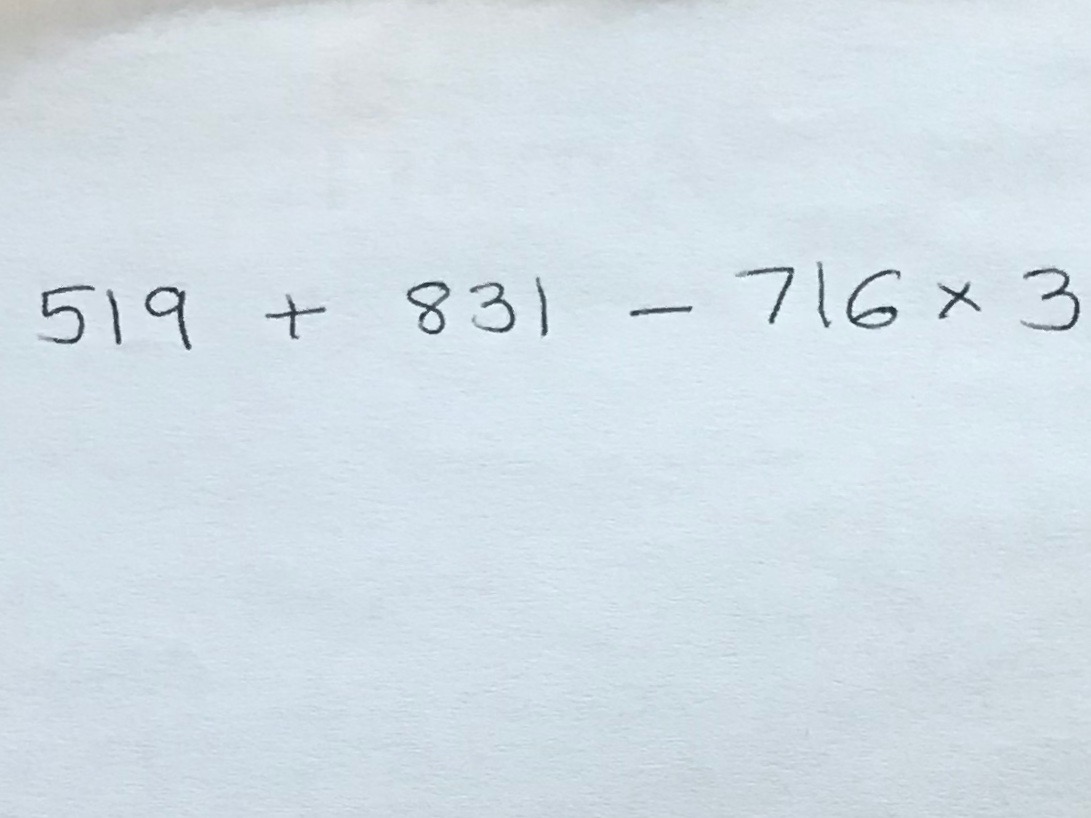 519 + 831 - 716 × 3